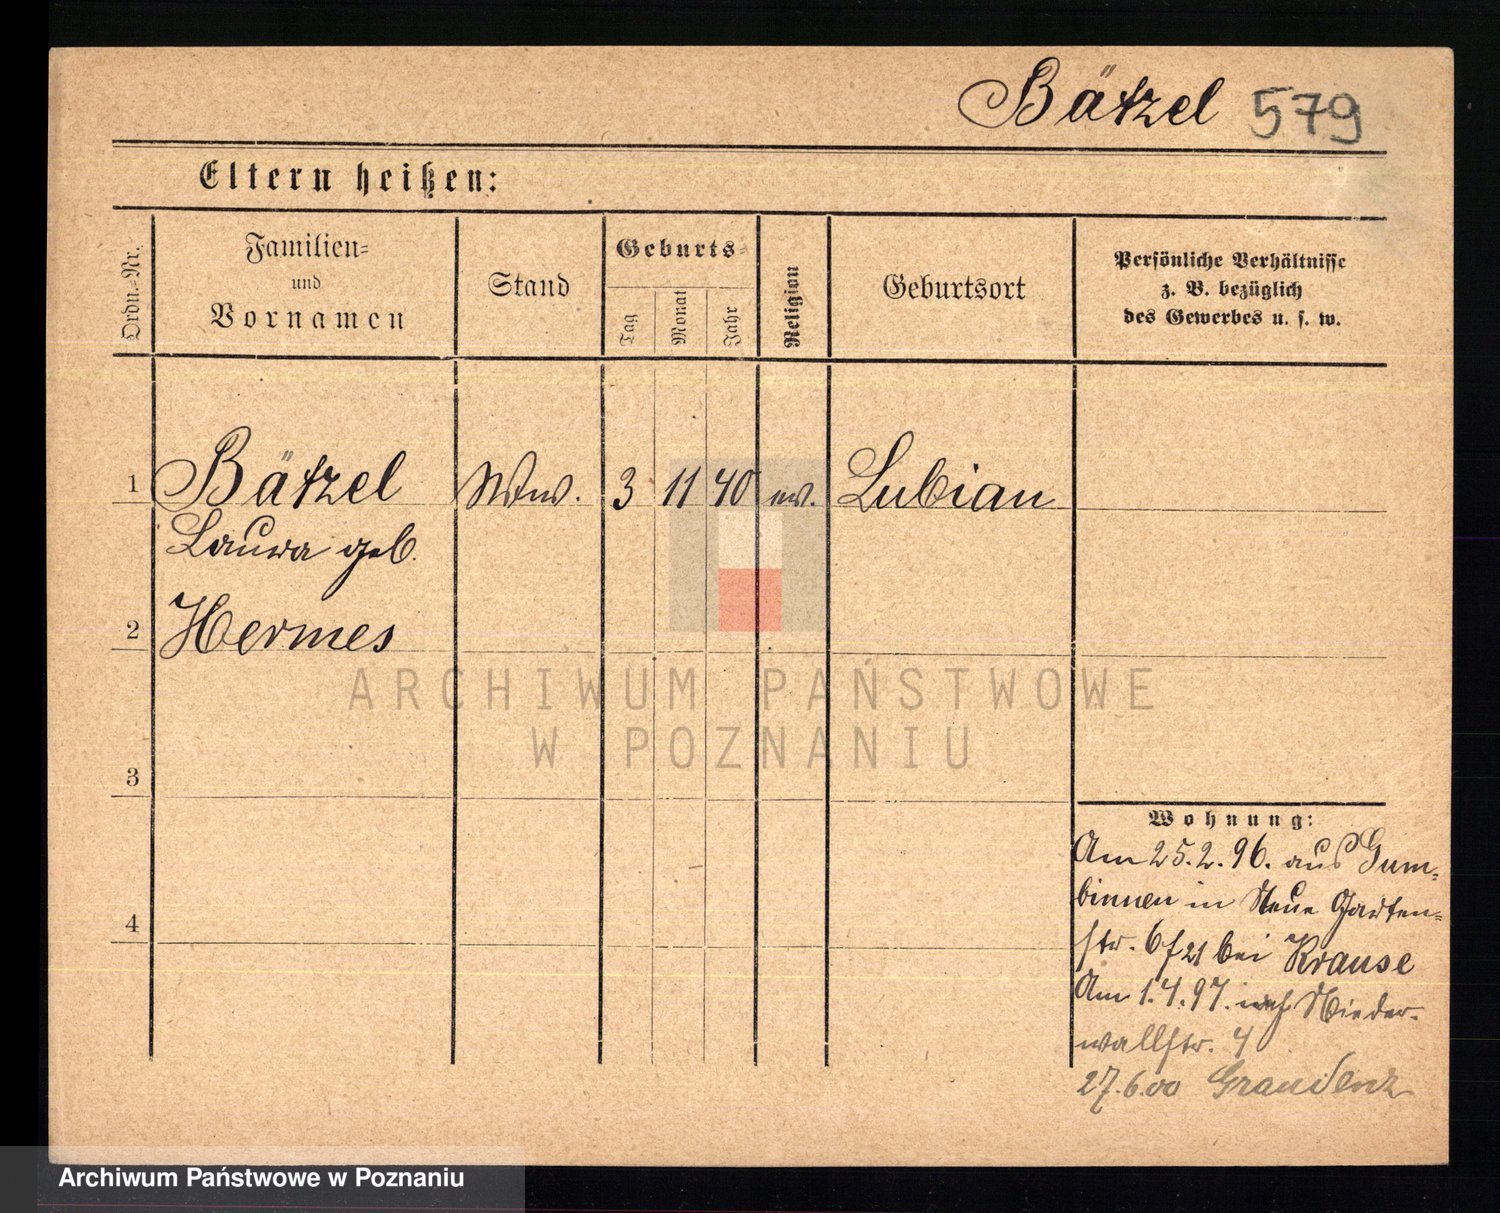 Bätzel 579
Eltern heißen:
Ordn.-Nr.
Familien-
und
Vornamen
Stand
Geburts-
Tag
Monat
Jahr
Religion
Geburtsort
Persönliche Verhältnisse
z. B. bezüglich
des Gewerbes u. s. w.
1 Bätzel Wtw. 3 11 40 ev. Lubian
Laura geb.
2 Hermes
3
4
Wohnung:
Am 25.2.96. aus Gum-
binnen in Neue Garten-
str. 6 f 21 bei Krause
Am 1.4.97. nach Nieder-
wallstr. 4
27.6.00 Graudenz
ARCHIWUM PAŃSTWOWE
W POZNANIU
Archiwum Państwowe w Poznaniu